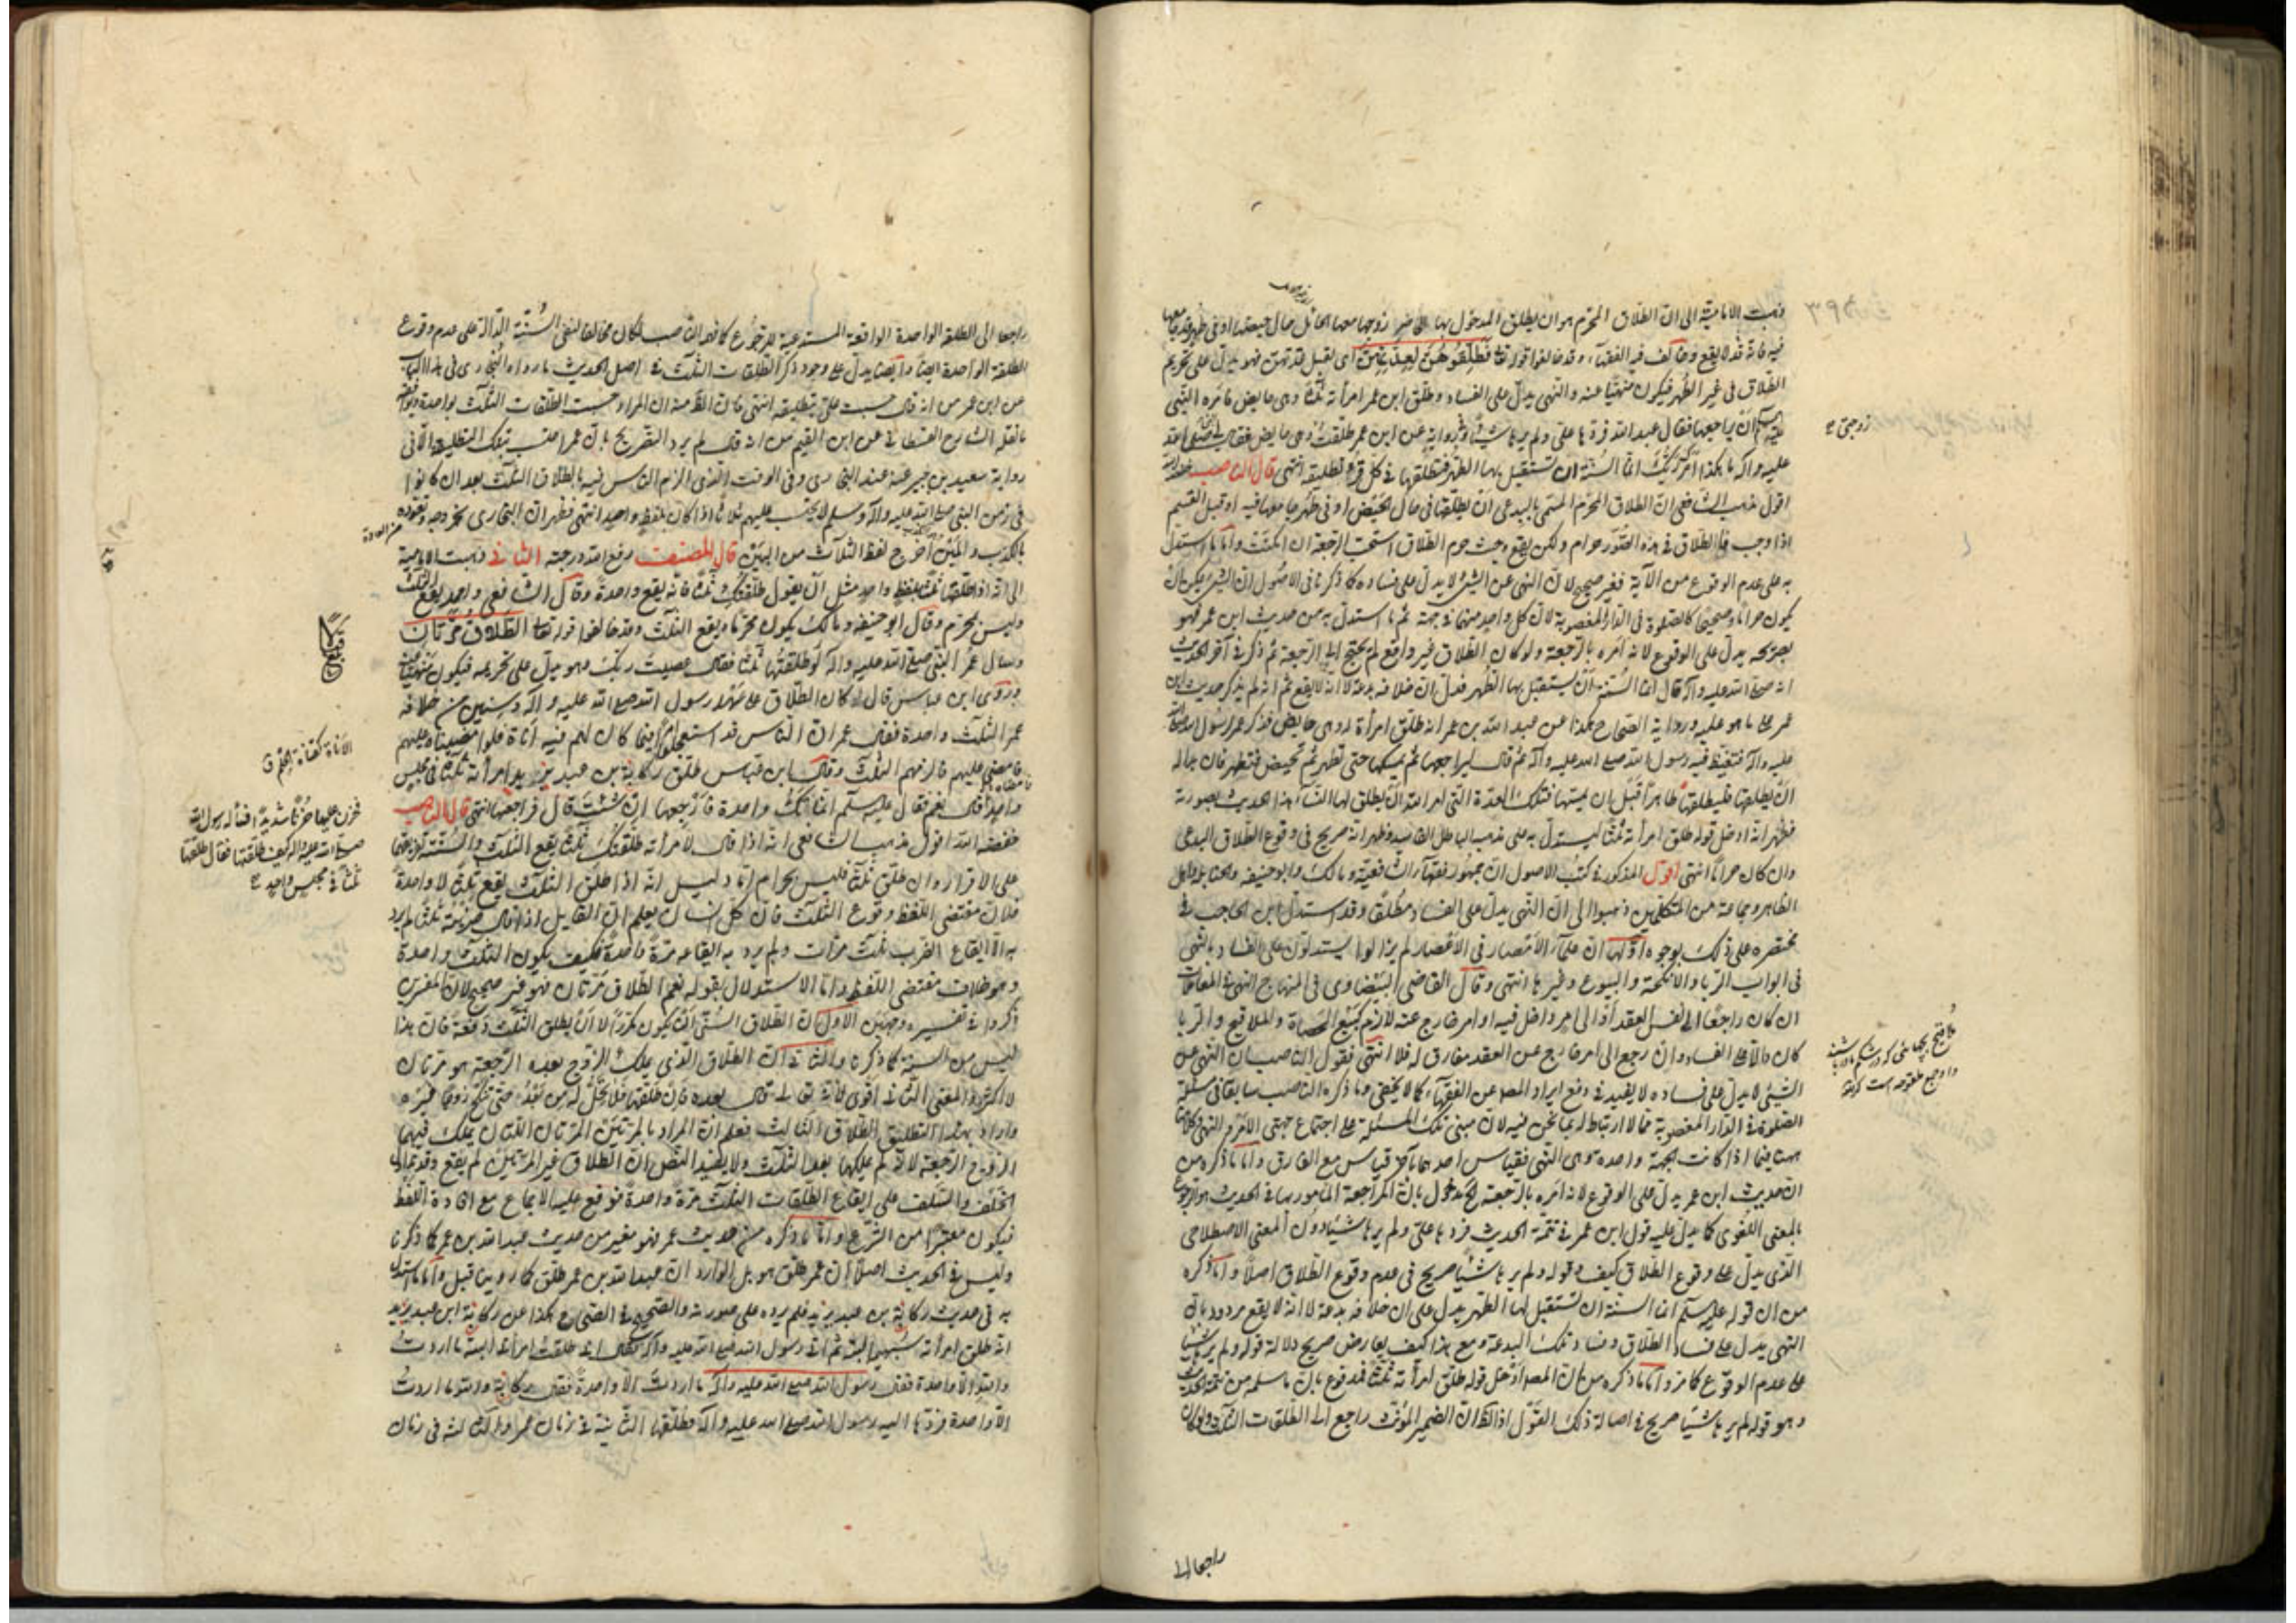 ذهبت الامامية الى ان الطلاق المحرم هو ان يطلق المدخول بها الحاضر زوجها معها الحائل حال حيضها او فى طهر قد جامعها
فيه فانه قد لا يقع وخالف فيه الفقهآء وقد خالفوا قوله تعا فطلقوهن لعدتهن اى لقبل عدتهن فهو يدل على تحريم
الطلاق فى غير الطهر فيكون منهيا عنه والنهى يدل على الفساد وطلق ابن عمر امرأته ثلثا وهى حايض فامره النبى
ان يراجعها فقال عبد الله فردها على ولم يرها شيئا وفى رواية عن ابن عمر طلقت زوجتى وهى حايض فقال لى النبى صلى الله
عليه وآله ما هكذا امرك ربك انما السنة ان تستقبل بها الطهر فتطلقها فى كل قرء تطليقة انتهى قال الناصب خفضه الله
اقول مذهب الشافعى ان الطلاق المحرم المسمى بالبدعى ان يطلقها فى حال الحيض او فى طهر جامعها فيه او قبل القسم
اذا وجب فالطلاق فى هذه الصور حرام ولكن يقع وحيث حرم الطلاق استحب الرجعة ان امكنت واما ما استدل
به على عدم الوقوع من الآية فغير صحيح لان النهى عن الشئ لا يدل على فساده كما ذكرنا فى الاصول ان الشئ يمكن ان
يكون حراما وصحيحا كالصلوة فى الدار المغصوبة لان كل واحد منهما من جهة ثم ما استدل به من حديث ابن عمر فهو
بصريحه يدل على الوقوع لانه امره بالرجعة ولو كان الطلاق غير واقع لم يحتج الى الرجعة ثم ذكر فى آخر الحديث
انه صلى الله عليه وآله قال انما السنة ان يستقبل بها الطهر فدل ان خلافه بدعة لا انه لا يقع ثم انه لم يذكر حديث ابن
عمر على ما هو عليه ورواية الصحاح هكذا عن عبد الله بن عمر انه طلق امرأة له وهى حايض فذكر عمر لرسول الله صلى الله
عليه وآله فتغيظ فيه رسول الله صلى الله عليه وآله ثم قال ليراجعها ثم يمسكها حتى تطهر ثم تحيض فتطهر فان بدا له
ان يطلقها فليطلقها طاهرا قبل ان يمسها فتلك العدة التى امر الله ان يطلق لها النسآء هذا الحديث بصورته
فظهر انه ادخل قوله طلق امرأته ثلثا ليستدل به على مذهبه الباطل الفاسد وظهر انه صريح فى وقوع الطلاق البدعى
وان كان حراما انتهى اقول المذكور فى كتب الاصول ان جمهور فقهآء الشافعية ومالك وابو حنيفه والحنابلة واهل
الظاهر وجماعة من المتكلمين ذهبوا الى ان النهى يدل على الفساد مطلقا وقد استدل ابن الحاجب فى
مختصره على ذلك بوجوه اولها ان علمآء الامصار فى الاعصار لم يزالوا يستدلون على الفساد بالنهى
فى ابواب الربا والانكحة والبيوع وغيرها انتهى وقال القاضى البيضاوى فى المنهاج النهى فى المعاملات
ان كان راجعا الى نفس العقد او الى امر داخل فيه او امر خارج عنه لازم كبيع الحصاة والملاقيح والربا
كان دالا على الفساد وان رجع الى امر خارج عن العقد مفارق له فلا انتهى فقول الناصب ان النهى عن
الشئ لا يدل على فساده لا يفيد فى دفع ايراد المصـ عن الفقهآء كما لا يخفى وما ذكره الناصب سابقا فى مسئلة
الصلوة فى الدار المغصوبة مما لا ارتباط له بما نحن فيه لان مبنى تلك المسئلة على اجتماع جهتى الامر والنهى وكلامنا
ههنا فيما اذا كانت الجهة واحدة وهى النهى فقياس احدهما بالآخر قياس مع الفارق واما ما ذكره من
ان حديث ابن عمر يدل على الوقوع لانه امره بالرجعة الخ مدخول بان المراجعة المأمور بها فى الحديث هو الرجوع
بالمعنى اللغوى كما يدل عليه قول ابن عمر فى تتمة الحديث فردها على ولم يرها شيئا دون المعنى الاصطلاحى
الذى يدل على وقوع الطلاق كيف وقوله ولم يرها شيئا صريح فى عدم وقوع الطلاق اصلا واما ما ذكره
من ان قوله عليه السلم انما السنة ان تستقبل لها الطهر يدل على ان خلافه بدعة لا انه لا يقع مردود بان
النهى يدل على فساد الطلاق وفساد تلك البدعة ومع هذا كيف يعارض صريح دلالة قوله ولم يرها شيئا
على عدم الوقوع كما مر واما ما ذكره من ان المصـ ادخل قوله طلق امرأته ثلثا فمدفوع بان ما سلمه من تتمة الحديث
وهو قوله لم يرها شيئا صريح فى اصالة ذلك القول اذ الظ ان الضمير المؤنث راجع الى الطلقات الثلث ولو كان
راجعا الى
زوجتى
ملاقيح بچهائى كه در شكم مادر باشند
واحد
٣٩٣
راجعا الى الطلقة الواحدة الواقعة المستدعية للرجوع كما فهمه الناصب لكان مخالفا لنفى السنة الدالة على عدم وقوع
الطلقة الواحدة ايضا وايضا يدل على وجود ذكر الطلقات الثلث فى اصل الحديث ما رواه البخارى فى هذا الباب
عن ابن عمر من انه قال حسبت على بتطليقة انتهى فان الظ منه ان المراد حسبت الطلقات الثلث بواحدة ويوافقه
ما نقله الشارح القسطلانى عن ابن القيم من انه قال لم يرد التصريح بان عمر احتسب بتلك التطليقة الا فى
رواية سعيد بن جبير عنه عند البخارى وفى الوقت الذى الزم الناس فيه بالطلاق الثلث بعد ان كانوا
فى زمن النبى صلى الله عليه وآله وسلم لا يحتسب عليهم ثلاثا اذا كان بلفظ واحد انتهى فظهر ان البخارى لخروجه وتعوده
بالكذب والمين اخرج لفظ الثلاث من البين قال المصنف رفع الله درجته الثانى ذهبت الامامية
الى انه اذا طلقها ثلثا بلفظ واحد مثل ان يقول طلقتك ثلثا فانه يقع واحدة وقال الشافعى واحمد يقع الثلث
وليس بمحرم وقال ابو حنيفه ومالك يكون محرما ويقع الثلث وقد خالفوا قوله تعا الطلاق مرتان
وسأل عمر النبى صلى الله عليه وآله لو طلقتها ثلثا فقال عصيت ربك فهو يدل على تحريمه فيكون منهيا عنه
وروى ابن عباس قال كان الطلاق على عهد رسول الله صلى الله عليه وآله وسنتين من خلافة
عمر الثلث واحدة فقال عمر ان الناس قد استعجلوا امرا فيما كان لهم فيه اناة فلو امضيناه عليهم
فامضى عليهم فالزمهم الثلث وقال ابن عباس طلق ركانة بن عبد يزيد امرأته ثلثا فى مجلس
واحد قال نعم فقال عليه السلم انما تلك واحدة فارجعها ان شئت قال فراجعها انتهى قال الناصب
خفضه الله اقول مذهب الشافعى انه اذا قال لامرأته طلقتك ثلثا يقع الثلث والسنة تفريقها
على الاقرار وان طلق ثلثا فليس بحرام اما دليل انه اذا طلق الثلث يقع ثلث لا واحدة
فلان مقتضى اللفظ وقوع الثلث فان كل انسان يعلم ان القايل اذا قال ضربته ثلثا لم يرد
به الا ايقاع الضرب ثلث مرات ولم يرد به ايقاعه مرة واحدة فكيف يكون الثلث واحدة
وهو خلاف مقتضى اللفظ واما الاستدلال بقوله تعالى الطلاق مرتان فهو غير صحيح لان المفسرين
ذكروا فى تفسيره وجهين الاول ان الطلاق السنى ان يكون مكررا لا ان يطلق الثلث دفعة فان هذا
ليس من السنة كما ذكرنا والثانى ان الطلاق الذى يملك الزوج بعده الرجعة هو مرتان
لا اكثر والمعنى الثانى اقوى لانه تعالى قال بعده فان طلقها فلا تحل له من بعد حتى تنكح زوجا غيره
واراد بهذا التطليق الطلاق الثالث فعلم ان المراد بالمرتين المرتان اللتان يملك فيهما
الزوج الرجعة لانه لم يملكها بعد الثلث ولا يفيد النص ان الطلاق غير المرتين لم يقع وقد توافق
الخلف والسلف على ايقاع الطلقات الثلث مرة واحدة فوقع عليه الاجماع مع افادة اللفظ
فيكون معتبرا من الشرع واما ما ذكره من حديث عمر فهو مغير من حديث عبد الله بن عمر كما ذكرنا
وليس فى الحديث اصلا ان عمر طلق هو بل الوارد ان عبد الله بن عمر طلق كما روينا قبل واما ما استدل
به فى حديث ركانة بن عبد يزيد فلم يرده على صورته والصحيح فى الصحاح هكذا عن ركانة ابن عبد يزيد
انه طلق امرأته سهيمة البتة ثم اتى رسول الله صلى الله عليه وآله فقال انى طلقت امرأتى البتة ما اردت
والله الا واحدة فقال رسول الله صلى الله عليه وآله ما اردت الا واحدة فقال ركانة والله ما اردت
الا واحدة فردها اليه رسول الله صلى الله عليه وآله فطلقها الثانية فى زمان عمر والثالثة فى زمان
عن العادة
الاناة كقناة الحلم ق
فحزن عليها حزنا شديدا فسأله رسول الله
صلى الله عليه وآله كيف طلقتها فقال طلقتها
ثلثا فى مجلس واحد